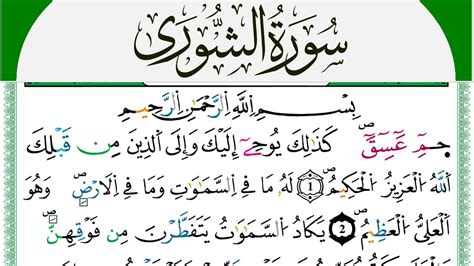 سُورَةُ الشُّورَى
بِسْمِ اللَّهِ الرَّحْمَٰنِ الرَّحِيمِ
حمٓ عٓسٓقٓ كَذَٰلِكَ يُوحِےٓ إِلَيْكَ وَإِلَى الَّذِينَ مِن قَبْلِكَ
اللَّهُ الْعَزِيزُ الْحَكِيمُ 1 لَهُ مَا فِي السَّمَٰوَٰتِ وَمَا فِي الَارْضِ وَهُوَ
الْعَلِيُّ الْعَظِيمُ 2 يَكَادُ السَّمَٰوَٰتُ يَتَفَطَّرْنَ مِن فَوْقِهِنَّ